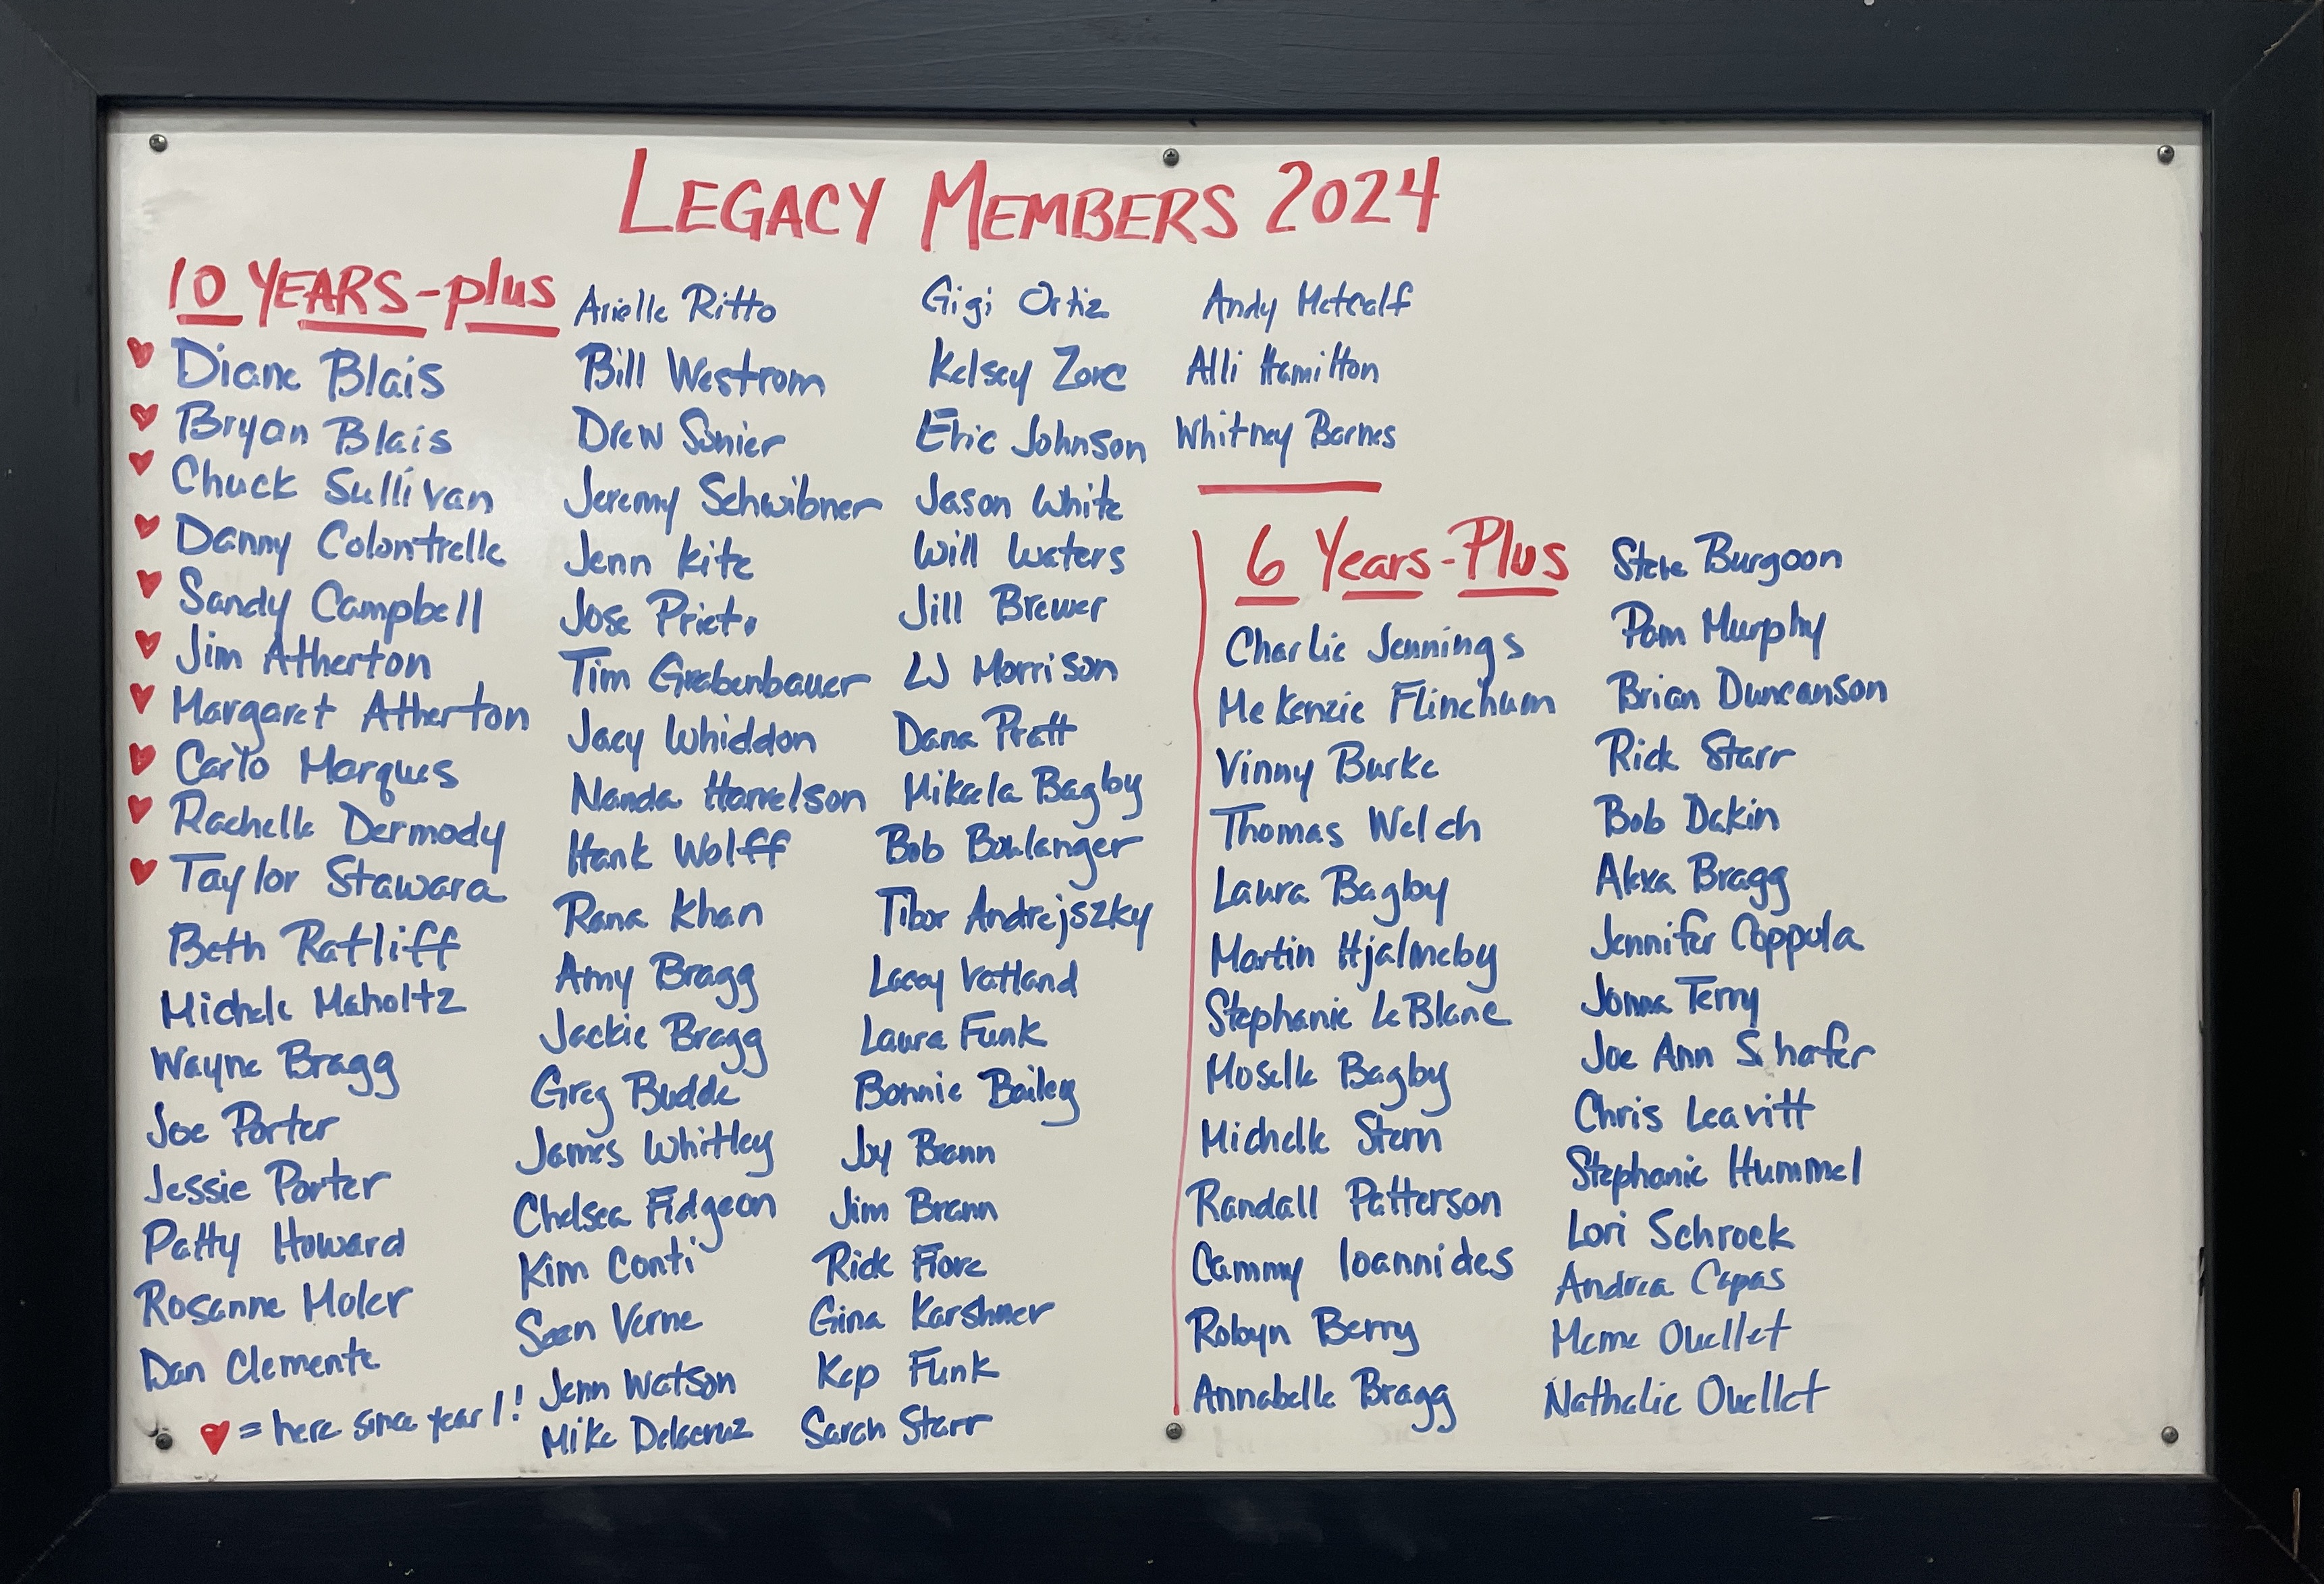 LEGACY MEMBERS 2024
10 YEARS-plus
♥ Diane Blais
♥ Bryan Blais
♥ Chuck Sullivan
♥ Danny Colontrelle
♥ Sandy Campbell
♥ Jim Atherton
♥ Margaret Atherton
♥ Carlo Marques
♥ Rachelle Dermody
♥ Taylor Stawara
Beth Ratliff
Michele Maholtz
Wayne Bragg
Joe Porter
Jessie Porter
Patty Howard
Rosanne Moler
Dan Clemente
♥ = here since year 1!
Arielle Ritto
Bill Westrom
Drew Sonier
Jeremy Schwibner
Jenn Kite
Jose Prieto
Tim Grabenbauer
Jacy Whiddon
Nanda Harrelson
Hank Wolff
Rana Khan
Amy Bragg
Jackie Bragg
Greg Budde
James Whitley
Chelsea Fidgeon
Kim Conti
Sean Verne
Jenn Watson
Mike Delacruz
Gigi Ortiz
Kelsey Zorc
Eric Johnson
Jason White
Will Waters
Jill Brewer
LJ Morrison
Dana Pratt
Mikaela Bagby
Bob Boulanger
Tibor Andrejszky
Lacey Vatland
Laura Funk
Bonnie Bailey
Joy Brann
Jim Brann
Rick Fiore
Gina Karshner
Kep Funk
Sarah Starr
Andy Metcalf
Alli Hamilton
Whitney Barnes
6 Years-Plus
Charlie Jennings
McKenzie Flinchum
Vinny Burke
Thomas Welch
Laura Bagby
Martin Hjalmeby
Stephanie LeBlanc
Moselle Bagby
Michelle Stern
Randall Patterson
Cammy Ioannides
Robyn Berry
Annabelle Bragg
Steve Burgoon
Pam Murphy
Brian Duncanson
Rick Starr
Bob Dakin
Alexa Bragg
Jennifer Coppola
Jonna Terry
Joe Ann Shafer
Chris Leavitt
Stephanie Hummel
Lori Schrock
Andrea Capas
Meme Ouellet
Nathalie Ouellet